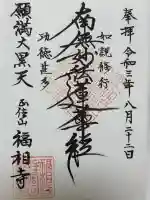 奉拝 令和三年八月二十二日
如説修行
南無妙法蓮華経
功徳甚多
願満大黒天
正住山 福相寺